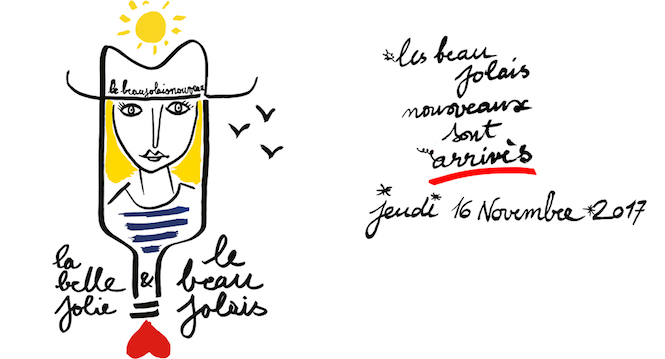 le beaujolais nouveau
la
belle
jolie
&
le
beau
jolais
les beau
jolais
nouveaux
sont
arrivés
jeudi 16 Novembre 2017